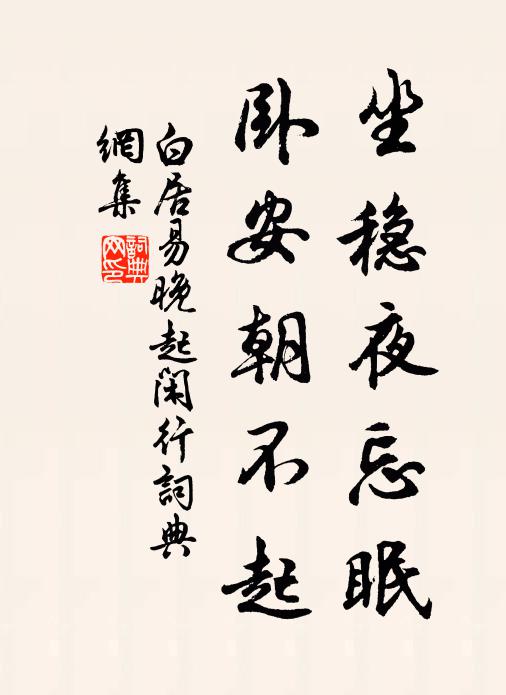 坐稳夜忘眠
卧安朝不起
白居易晚起闲行詞典
網集
詞典
网印